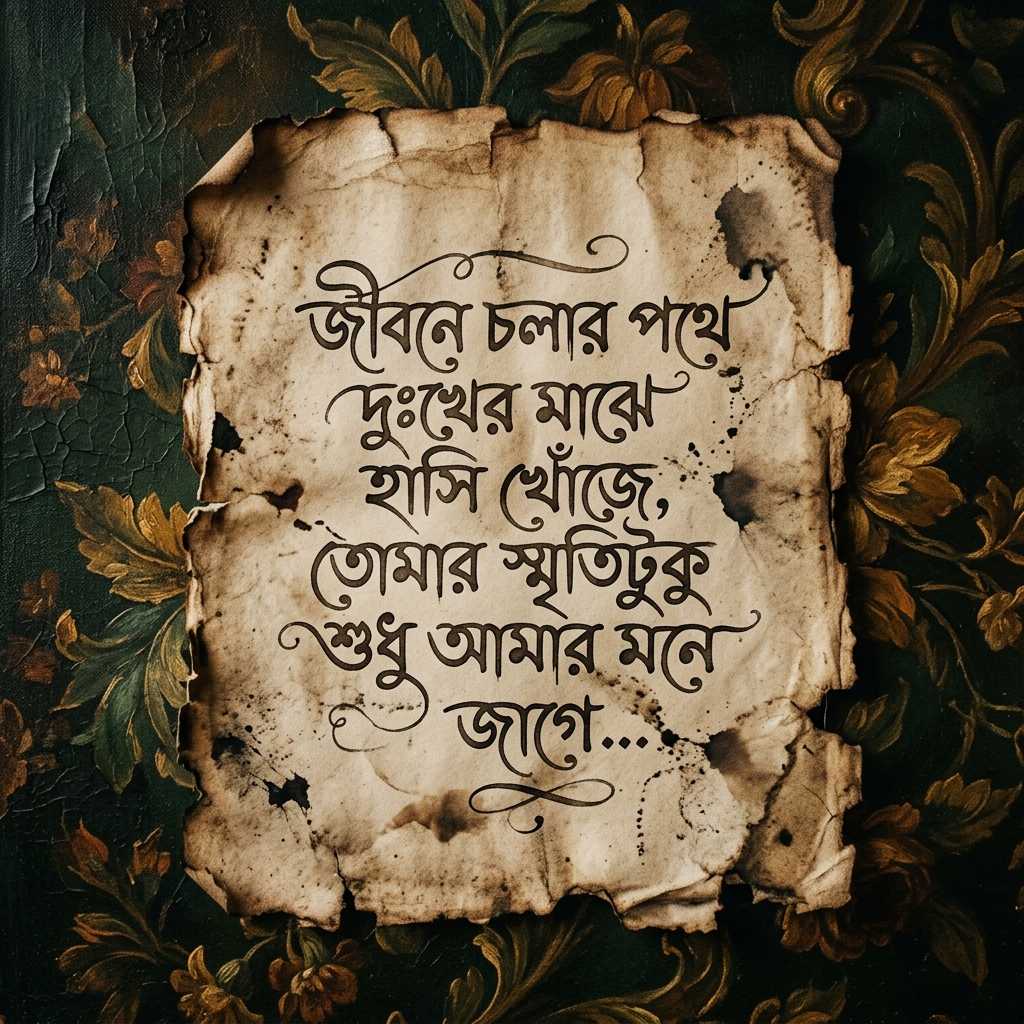 জীবনে চলার পথে
দুঃখের মাঝে
হাসি খোঁজে,
তোমার স্মৃতিটুকু
শুধু আমার মনে
জাগে...